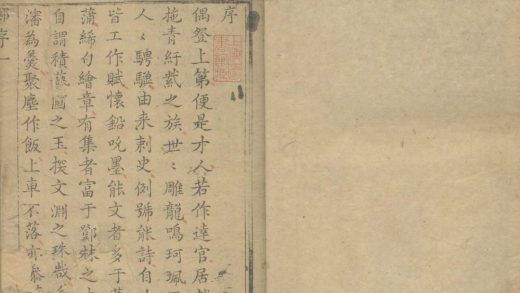 序
偶登上第便是才人若作達官居
拖青紆紫之族世〻雕龍鳴珂珮
人〻騁驥由来刺史例號能詩自
皆工作賦懷鉛吮墨能文者多于
蒲絺句繪章有集者富于鄧林之
自謂積藝圃之玉探文淵之珠哉
瀋為羹聚塵作飯上車不落亦
序一